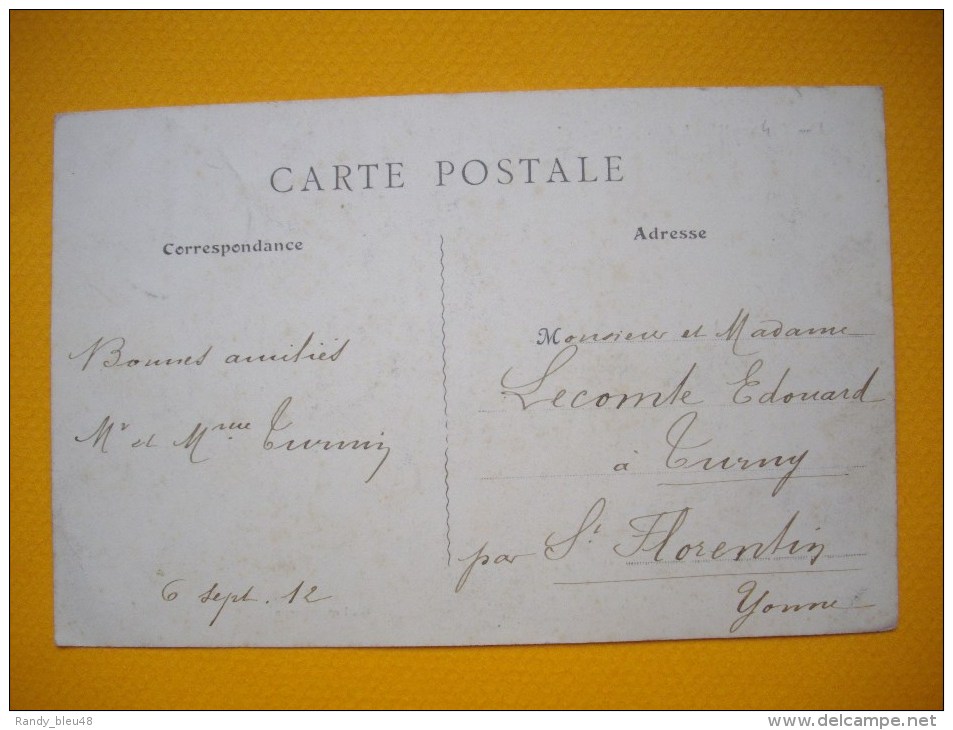 CARTE POSTALE
Correspondance
Bonnes amitiés
Mr et Mme
6 sept. 12
Adresse
Monsieur et Madame
Lecomte Edouard
à Turny
par St Florentin
Yonne
Randy_bleu48
www.delcampe.net